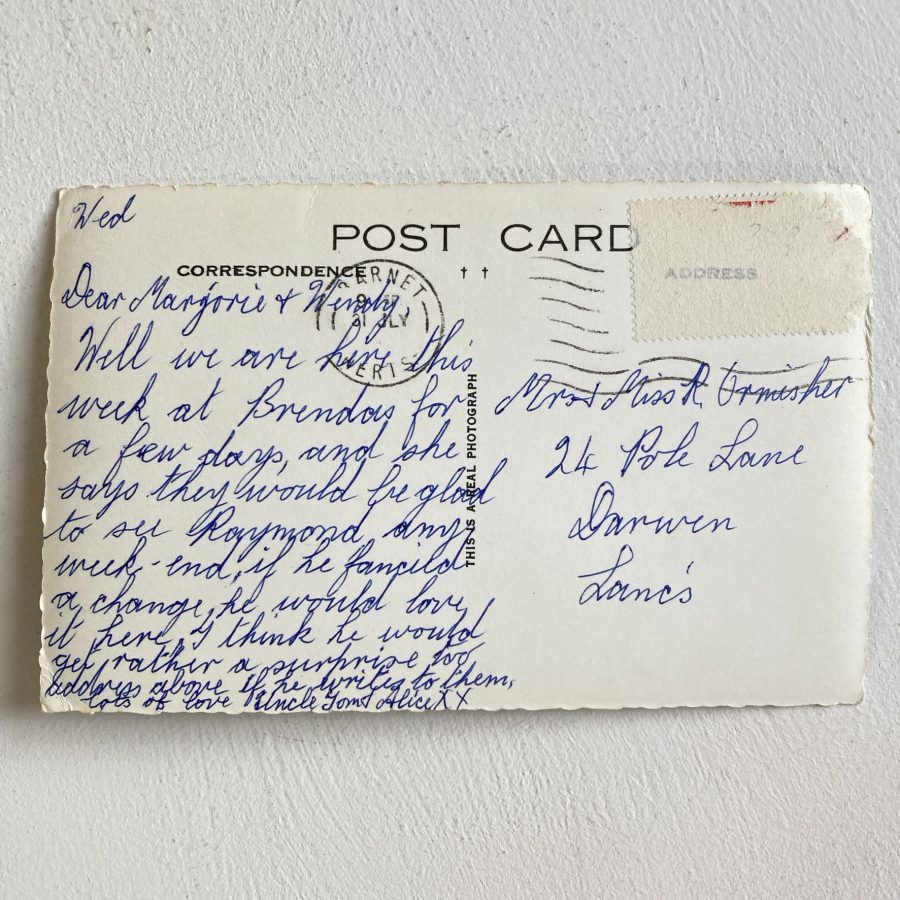 Wed
POST CARD
CORRESPONDENCE
ADDRESS
BARNET
31 JLY
HERTS
Dear Marjorie & Wendy,
Well we are here this
week at Brendas for
a few days, and she
says they would be glad
to see Raymond any
week-end, if he fancied
a change, he would love
it here, I think he would
get rather a surprise too
address above if he writes to them,
lots of love Uncle Tom & Alice XX
THIS IS A REAL PHOTOGRAPH
Mrs & Miss R. Ormisher
24 Pole Lane
Darwen
Lanc's